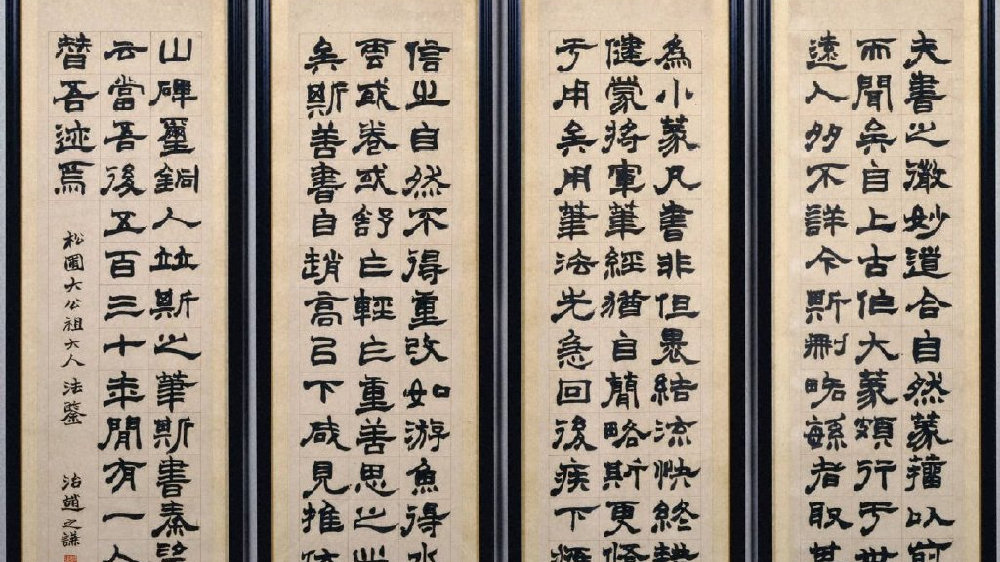 夫書之微妙道合自然篆籀以前
而聞矣自上古作大篆頗行于世
遠人多不詳今斯刪略繇者取其
為小篆凡書非但裹結流快終藉
健蒙將軍筆經猶自簡略斯更修
于用矣用筆法先急回後疾下
信之自然不得重改如游魚得水
雲或卷或舒乍輕乍重善思之此
矣斯善書自趙高以下咸見推伏
山碑璽銅人竝斯之筆斯書秦望
云當吾後五百三十年間有一人
替吾迹焉
松圃大公祖大人法鑒
治趙之謙